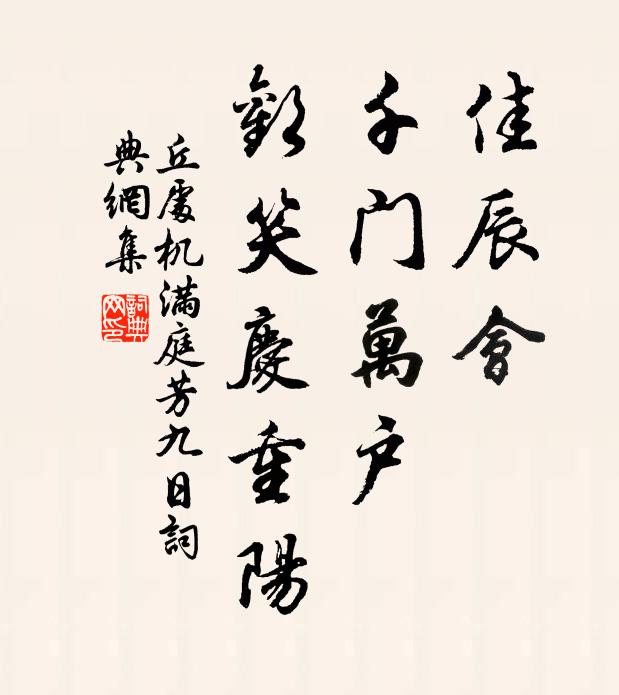 佳辰會
千門萬户
歡笑慶重陽
丘處机滿庭芳九日詞
典網集
詞典網印